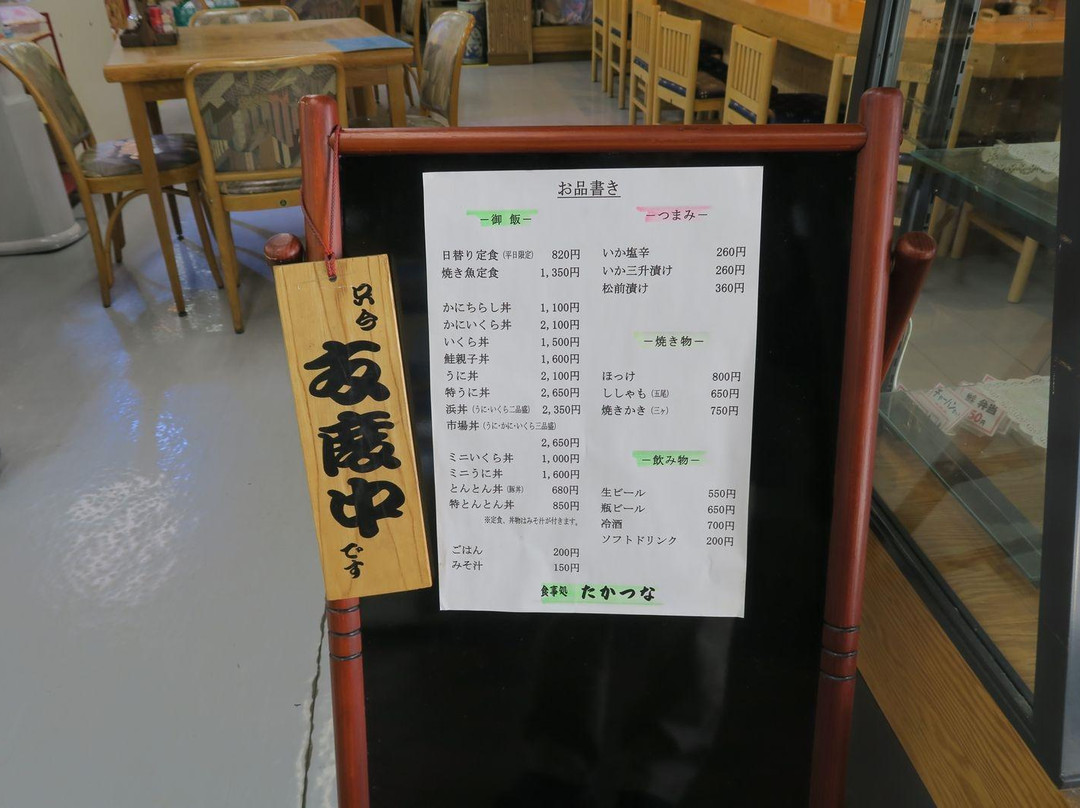 お品書き
－御 飯－
日替り定食（平日限定） 820円
焼き魚定食 1,350円
かにちらし丼 1,100円
かにいくら丼 2,100円
いくら丼 1,500円
鮭親子丼 1,600円
うに丼 2,100円
特うに丼 2,650円
浜丼（うに・いくら二品盛） 2,350円
市場丼（うに・かに・いくら三品盛）
2,650円
ミニいくら丼 1,000円
ミニうに丼 1,600円
とんとん丼（豚丼） 680円
特とんとん丼 850円
※定食、丼物はみそ汁が付きます。
ごはん 200円
みそ汁 150円
－つまみ－
いか塩辛 260円
いか三升漬け 260円
松前漬け 360円
－焼き物－
ほっけ 800円
ししゃも（五尾） 650円
焼きかき（三ヶ） 750円
－飲み物－
生ビール 550円
瓶ビール 650円
冷酒 700円
ソフトドリンク 200円
食事処 たかつな
只今
支度中
です